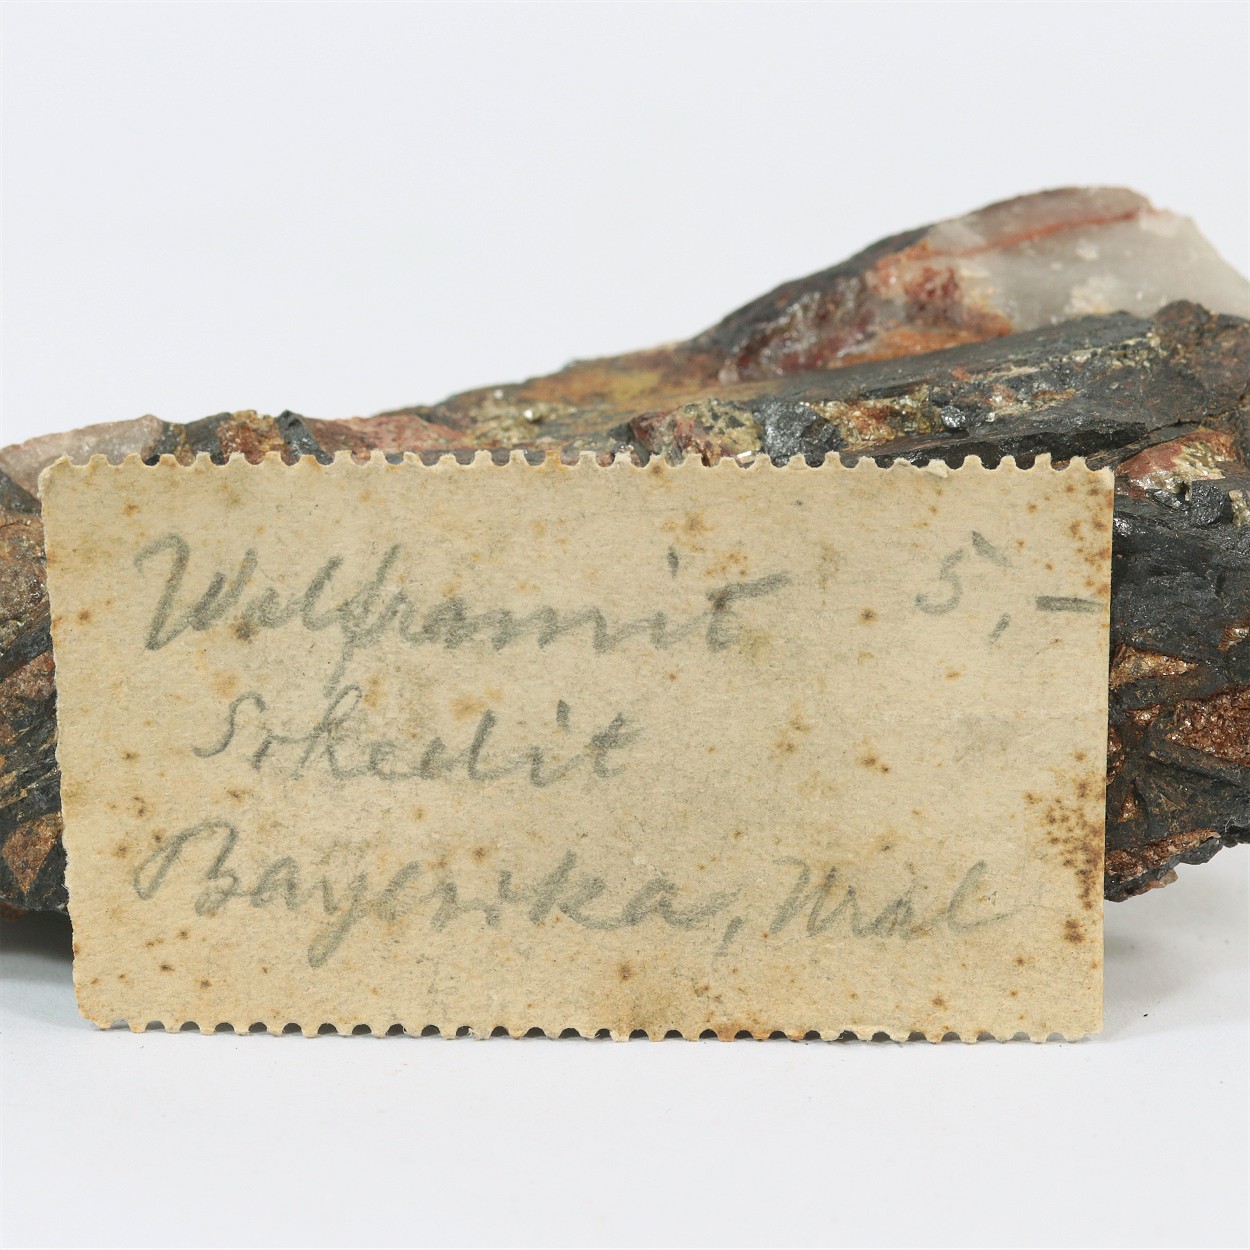 Wolframit 5,-
Scheelit
Ural